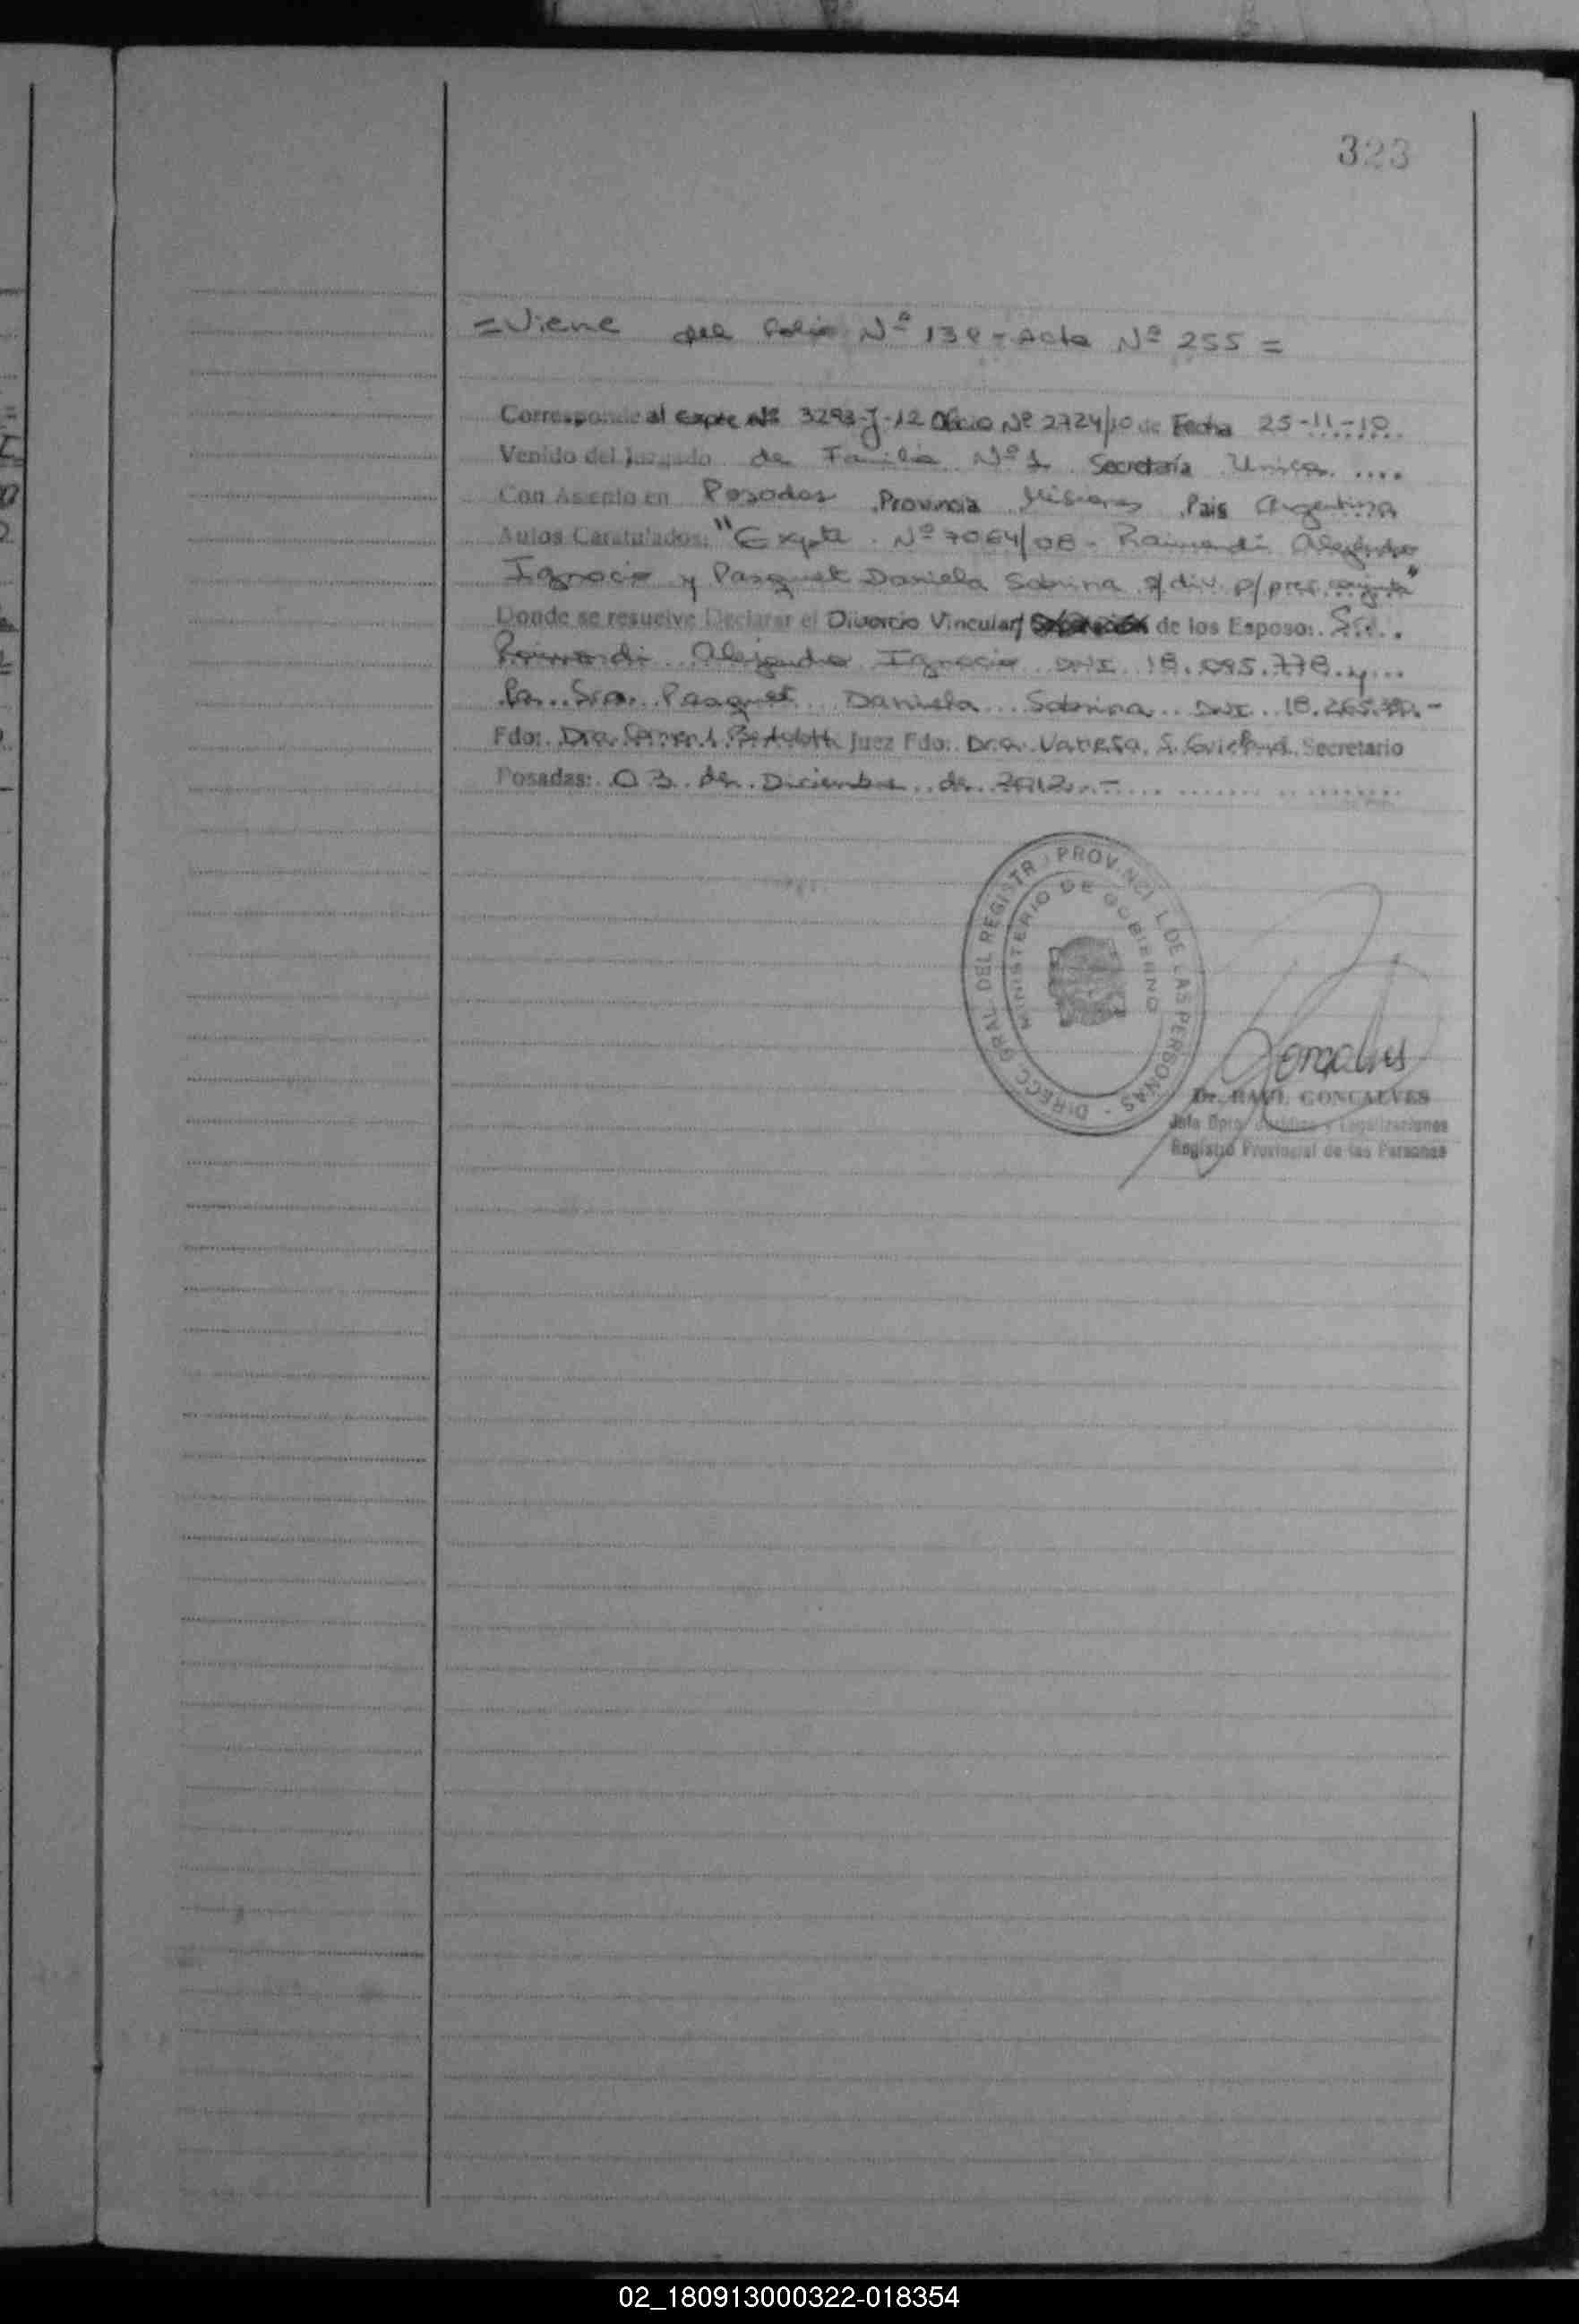 323
=Viene del Folio Nº 138-Acta Nº 255=
Corresponde al Expte Nº 3293-J-12 Oficio Nº 2724/10 de Fecha 25-11-10
Venido del Juzgado de Familia Nº 1 Secretaría Unica ....
Con Asiento en Posadas Provincia Misiones Pais Argentina
Autos Caratulados: "Expte. Nº 7064/08 - Raimondi Alejandro
Ignacio y Pasquet Daniela Sabrina s/ div. p/ pres. conjunta"
Donde se resuelve Declarar el Divorcio Vincular/ de los Esposo: Sr...
Raimondi Alejandro Ignacio DNI 18.095.778.y...
la Sra. Pasquet Daniela Sabrina DNI
Fdo: Dra. Juez Fdo: Dra. Vanesa S. Secretario
Posadas: 03 de Diciembre de 2012.-
DIRECC. GRAL. DEL REGISTR PROVINCI L DE LAS PERSONAS -
MINISTERIO DE GOBIERNO
Goncalves
Dr. RAUL GONCALVES
Jefe Dpto. Jurídico y Legalizaciones
Registro Provincial de las Personas
02_180913000322-018354